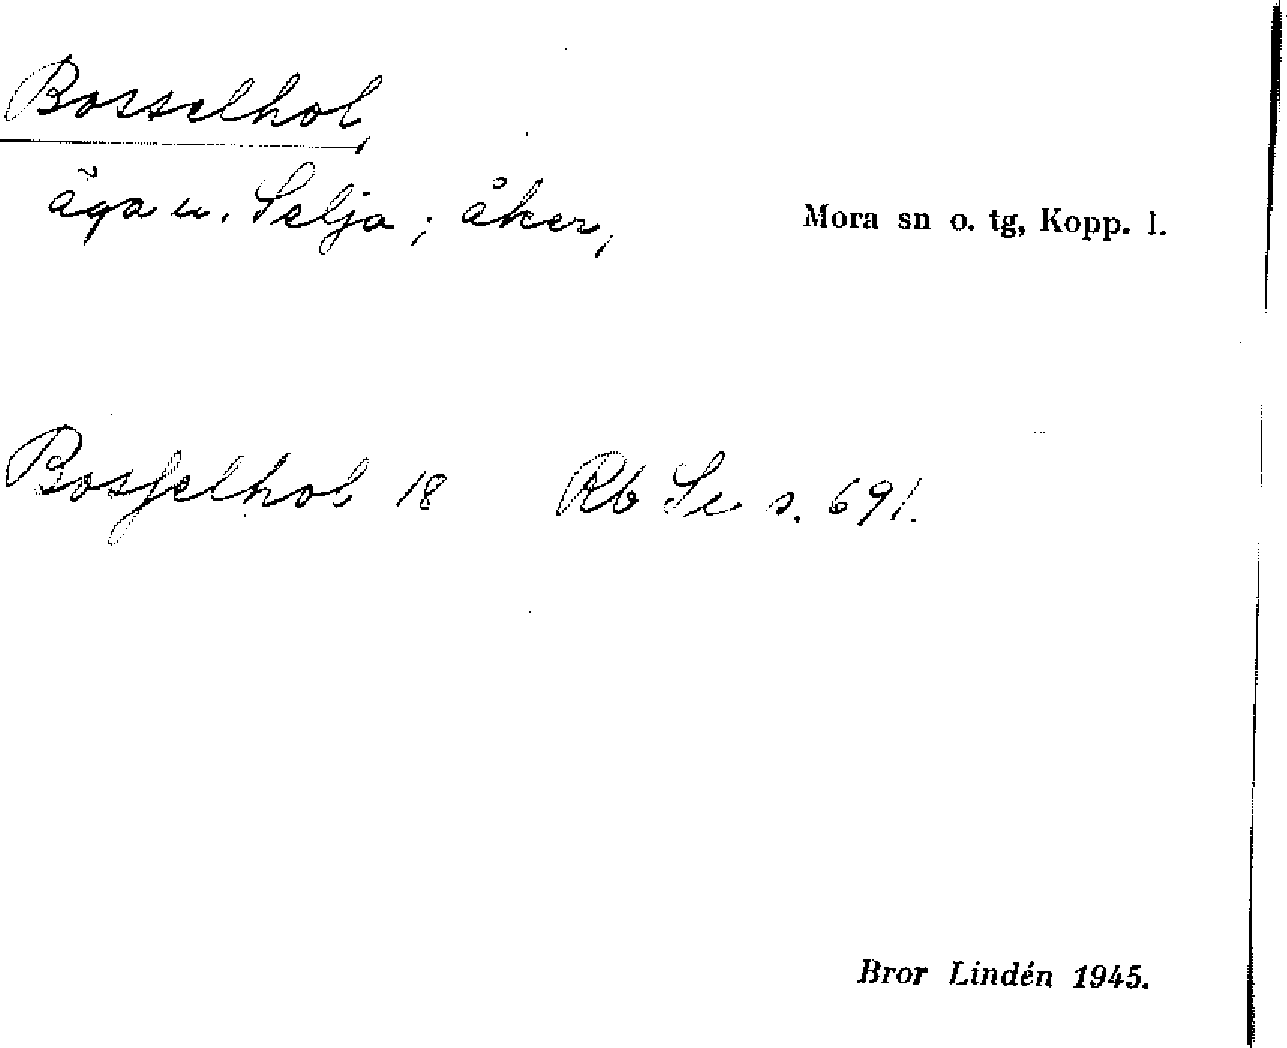 Bosselhol,
äga u. Selja; åker,
Mora sn o. tg, Kopp. l.
Bosselhol 18 Rb Se s. 691.
Bror Lindén 1945.